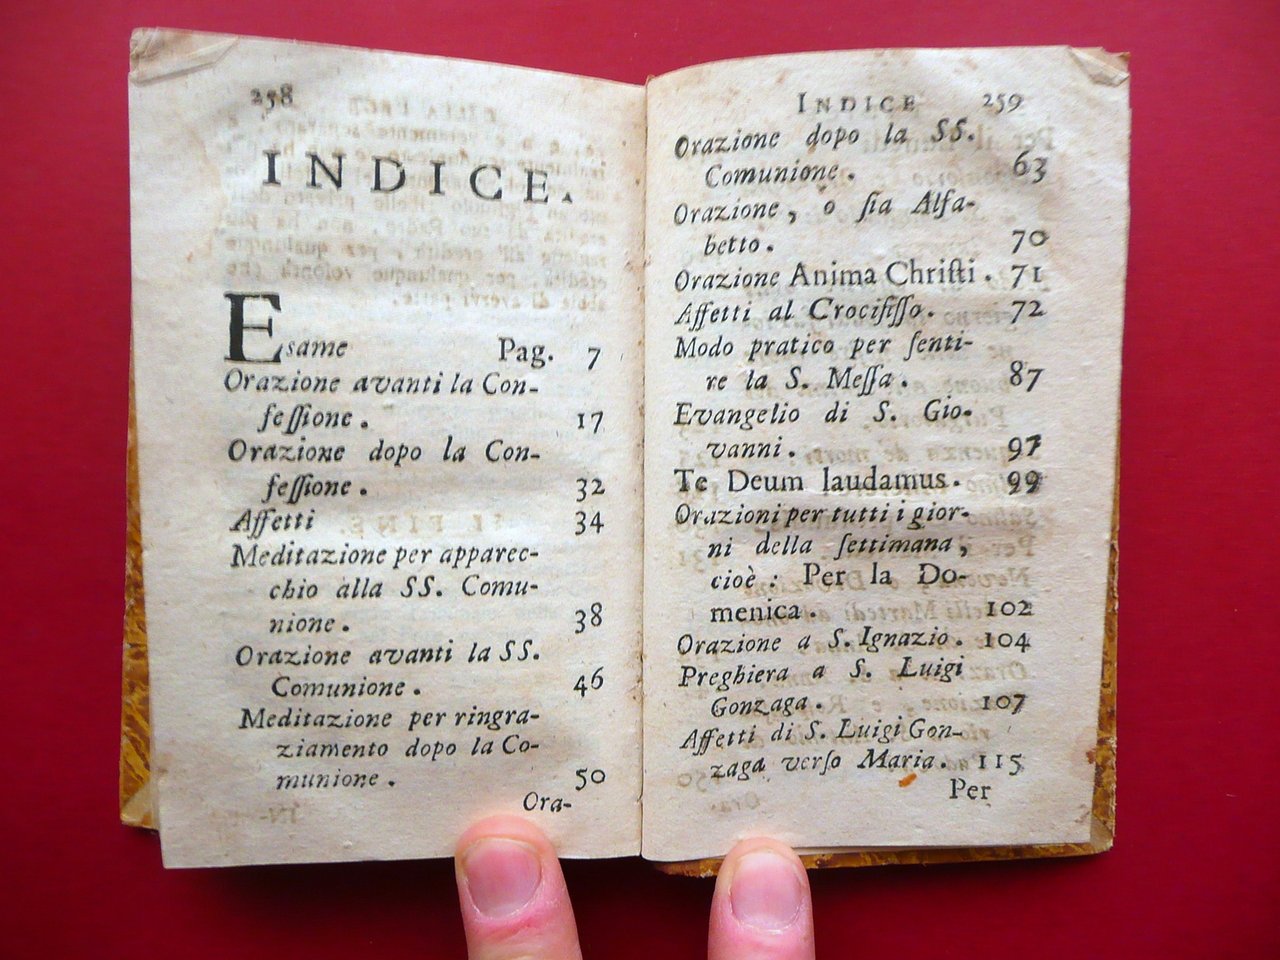 258
INDICE.
Esame Pag. 7
Orazione avanti la Con-
feſſione. 17
Orazione dopo la Con-
feſſione. 32
Affetti 34
Meditazione per apparec-
chio alla SS. Comu-
nione. 38
Orazione avanti la SS.
Comunione. 46
Meditazione per ringra-
ziamento dopo la Co-
munione. 50
Ora-
INDICE 259
Orazione dopo la SS.
Comunione. 63
Orazione, o ſia Alfa-
betto. 70
Orazione Anima Chriſti. 71
Affetti al Crocifiſſo. 72
Modo pratico per ſenti-
re la S. Meſſa. 87
Evangelio di S. Gio-
vanni. 97
Te Deum laudamus. 99
Orazioni per tutti i gior-
ni della ſettimana,
cioè: Per la Do-
menica. 102
Orazione a S. Ignazio. 104
Preghiera a S. Luigi
Gonzaga. 107
Affetti di S. Luigi Gon-
zaga verſo Maria. 115
Per